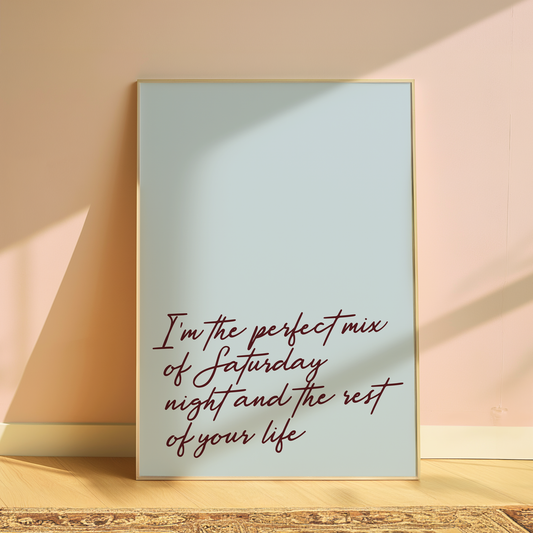 I'm the perfect mix
of Saturday
night and the rest
of your life